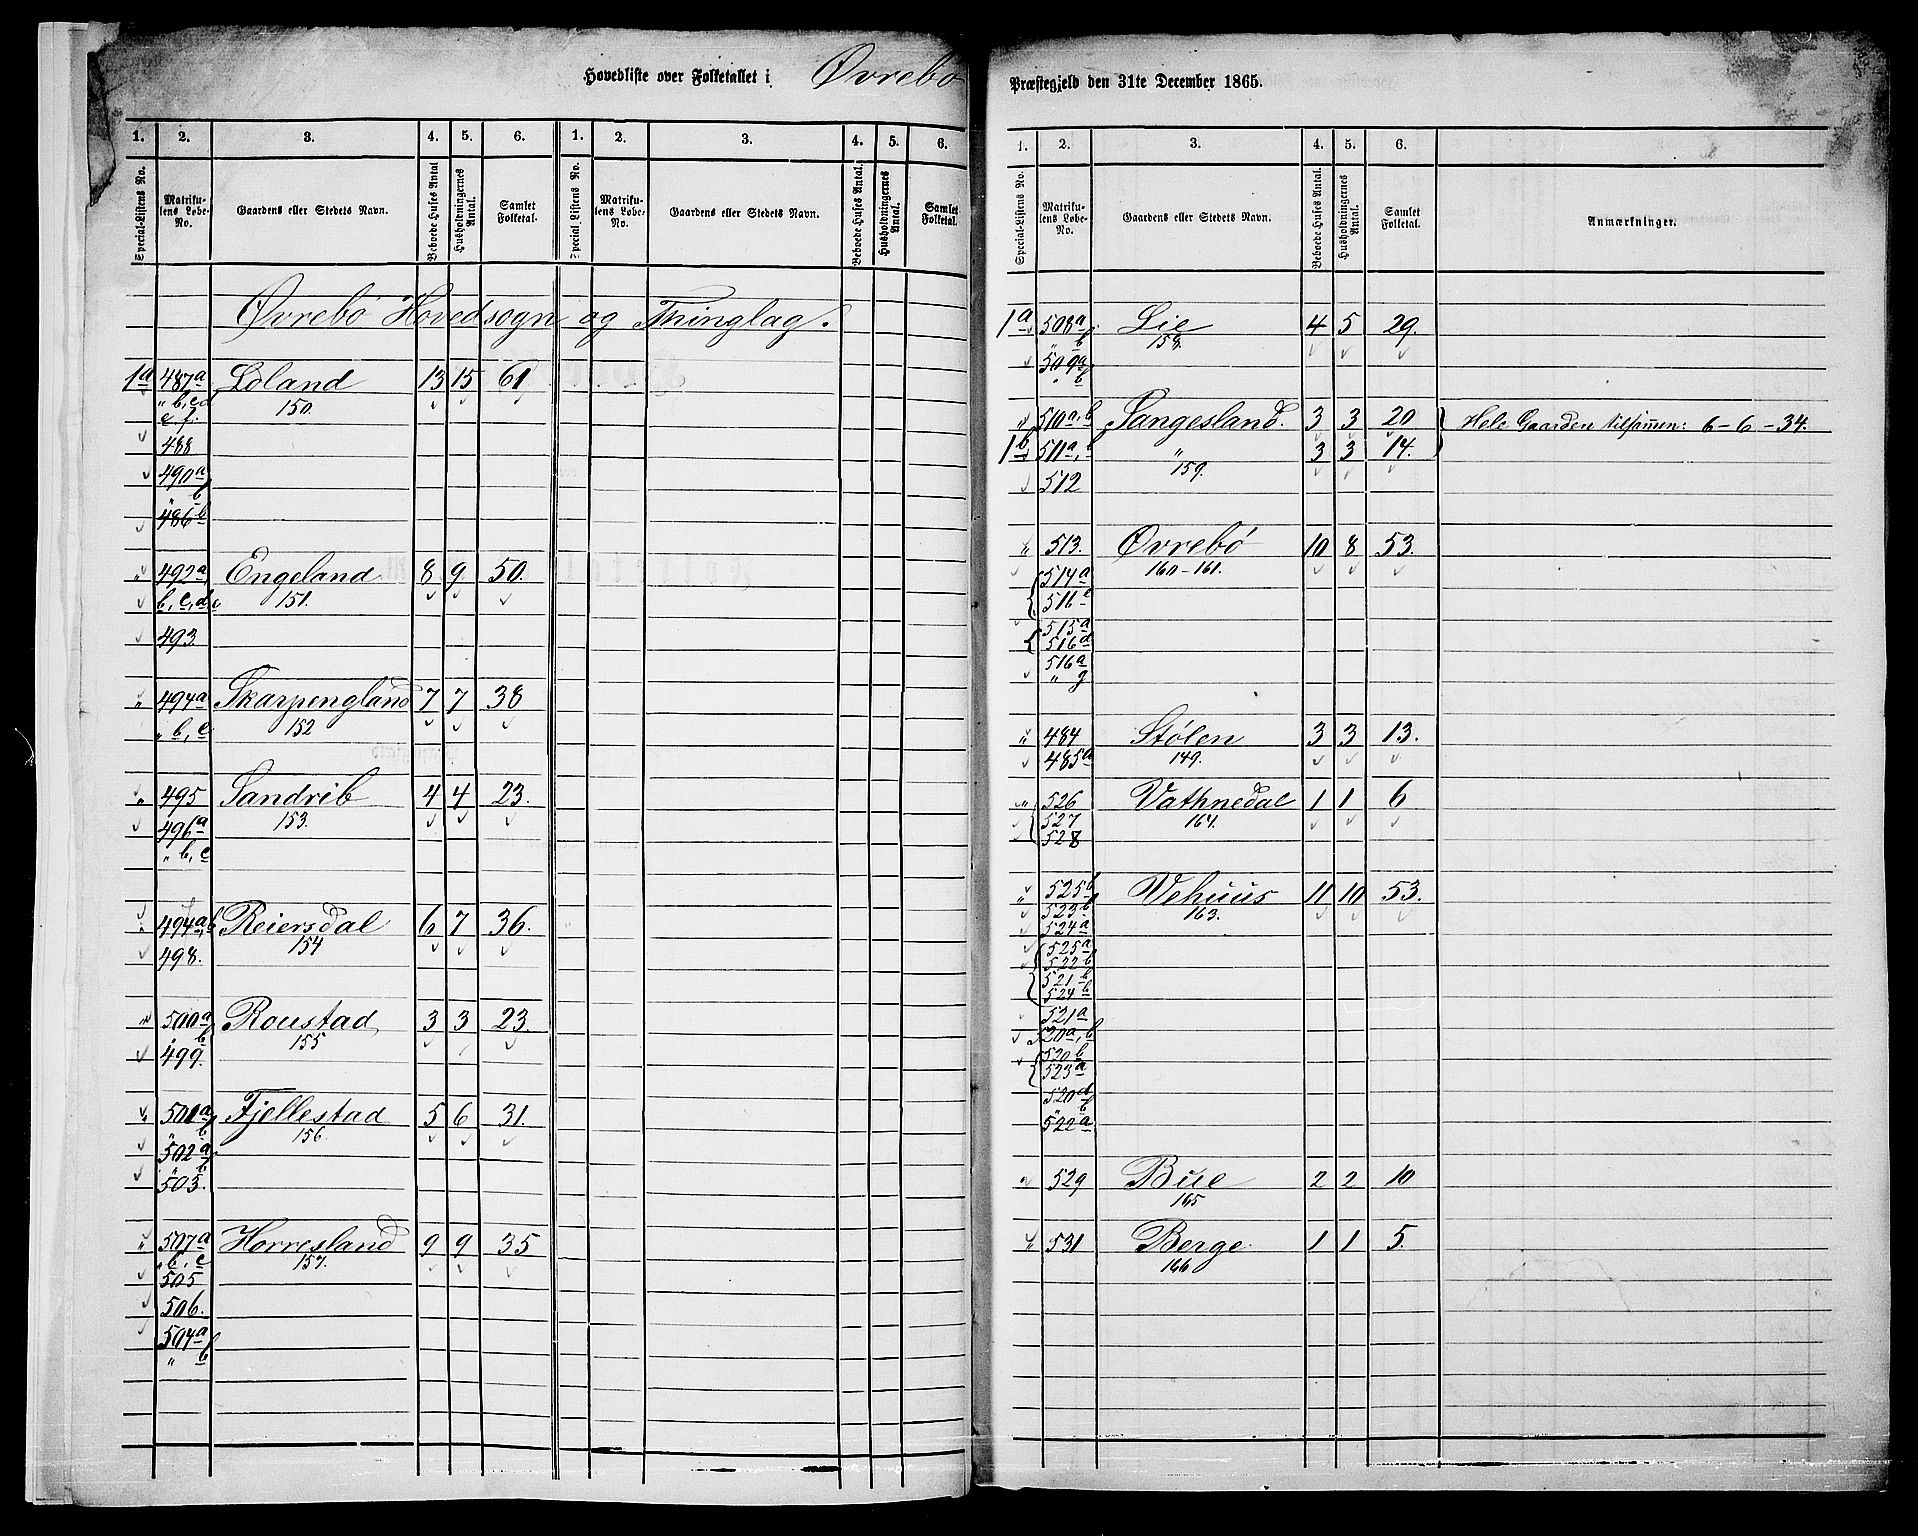 Hovedliste over Folketallet i Øvrebø
1. 2. 3. 4. 5. 6. 1. 2. 3. 4. 5. 6.
Special-Listens No. Matrikulens Løbe-No. Gaardens eller Stedets Navn. Beboede Huses Antal Husholdningernes Antal. Samlet Folketal. Special Listens No. Matrikulens Løbe-No. Gaardens eller Stedets Navn. Beboede Huses Antal. Husholdningernes Antal. Samlet Folketal.
Øvrebø Hovedsogn og Thinglag.
1a 487a Loland 13 15 61
" b, c, d 150.
e, f.
488
490a
" b
486b
" 492a Engeland 8 9 50.
b, c, d, e 151.
493
" 494a Skarpengland 7 7 38
" b, c 152
" 495 Sandrib 4 4 23.
496a 153.
" b, c
" 494a, b Reiersdal 6 7 36.
498. 154
" 500a Roustad 3 3 23.
" b 155
499.
" 501a Fjellestad 5 6 31.
" b 156.
502a
" b
503.
" 507a Horresland 9 9 35
" b, c 157.
505
506.
504a
" b
Præstegjeld den 31te December 1865.
1. 2. 3. 4. 5. 6.
Special-Listens No. Matrikulens Løbe-No. Gaardens eller Stedets Navn. Beboede Huses Antal. Husholdningernes Antal. Samlet Folketal. Anmærkninger.
1a 508a Lie 4 5 29.
" b 158.
509a
" b
" 510a, b Sangesland. 3 3 20 Hele Gaarden tilsamen: 6 - 6 - 34.
1b 511a, b " 3 3 14.
512 159.
" 513. Øvrebø 10 8 53.
514a 160-161.
516c
515a
516d
516a
" g
" 484 Stølen 3 3 13.
485a 149.
" 526 Vathnedal 1 1 6
527 164.
528
" 525b Vehuus 11 10 53.
523b 163.
524a
525a
522b
521b
524b
521a
520a, b
520b
523a
520d
" b
522a
" 529 Bue 2 2 10
165
" 531 Berge 1 1 5.
166